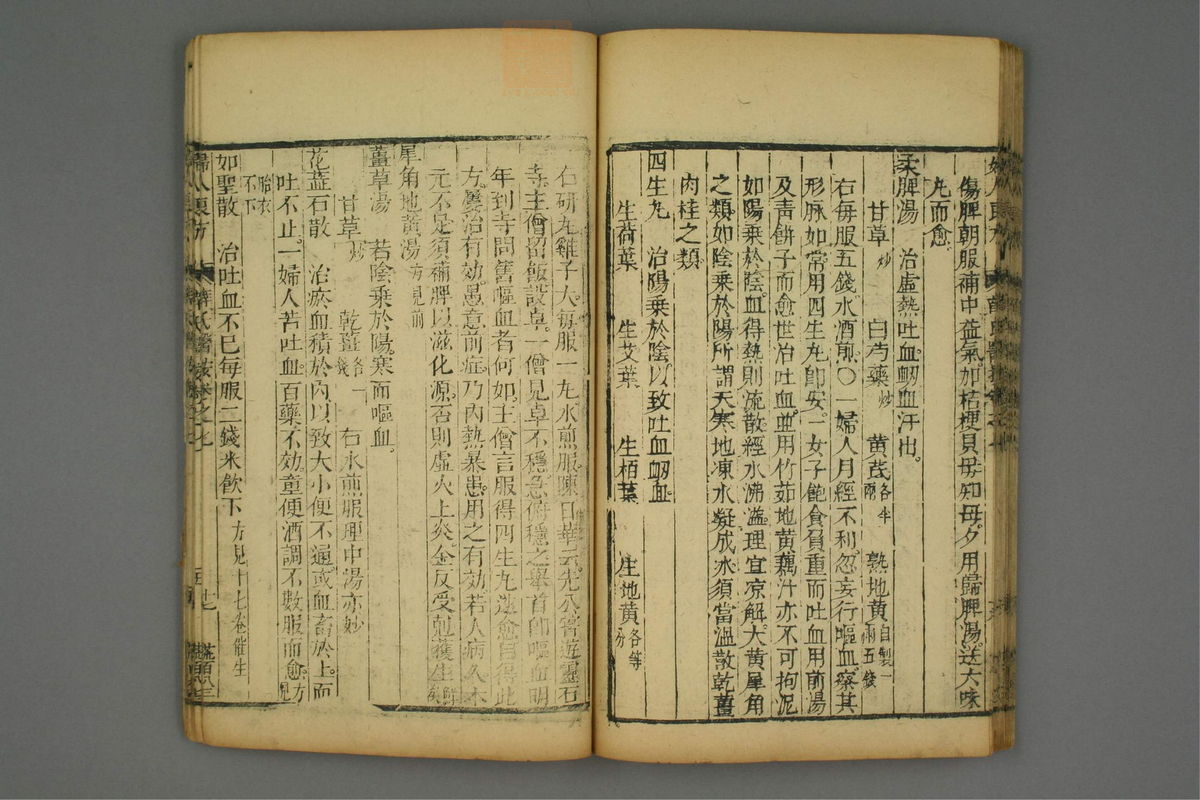 傷脾朝服補中益氣加桔梗貝母知母夕用歸脾湯送六味
丸而愈
柔脾湯　治虛熱吐血衂血汗出。
甘草炒　白芍藥炒　黄芪各半兩　熟地黄自製一兩五錢
右每服五錢水酒煎〇一婦人月經不利忽妄行嘔血察其
形脉如常用四生丸即安。一女子飽食負重而吐血用前湯
及青餅子而愈世治吐血並用竹茹地黄藕汁亦不可拘泥
如陽乗於陰血得熱則流散經水沸溢理宜凉解大黄犀角
之類如陰乗於陽所謂天寒地凍水凝成氷須當温散乾薑
肉桂之類
四生丸　治陽乗於陰以致吐血衂血
生荷葉　生艾葉　生栢葉　生地黄各等分
右研丸雞子大每服一丸水煎服陳日華云先公嘗遊靈石
寺主僧留飯設卓一僧見卓不穩急俯穩之舉首即嘔血明
年到寺問舊嘔血者何如主僧言服得四生丸遂愈自得此
方屢治有効愚意前症乃内熱暴患用之有効若人病久本
元不足須補脾以滋化源否則虛火上炎金反受剋獲生鮮矣
犀角地黄湯方見前
薑草湯　若陰乗於陽寒而嘔血。
甘草炒　乾薑各一錢　右水煎服理中湯亦妙
花蕊石散　治瘀血積於内以致大小便不通或血畜於上而
吐不止一婦人苦吐血百藥不効童便酒調不數服而愈方見
胎衣不下
如聖散　治吐血不已每服二錢米飲下方見十七卷催生
婦人良方　薛氏醫按卷之七